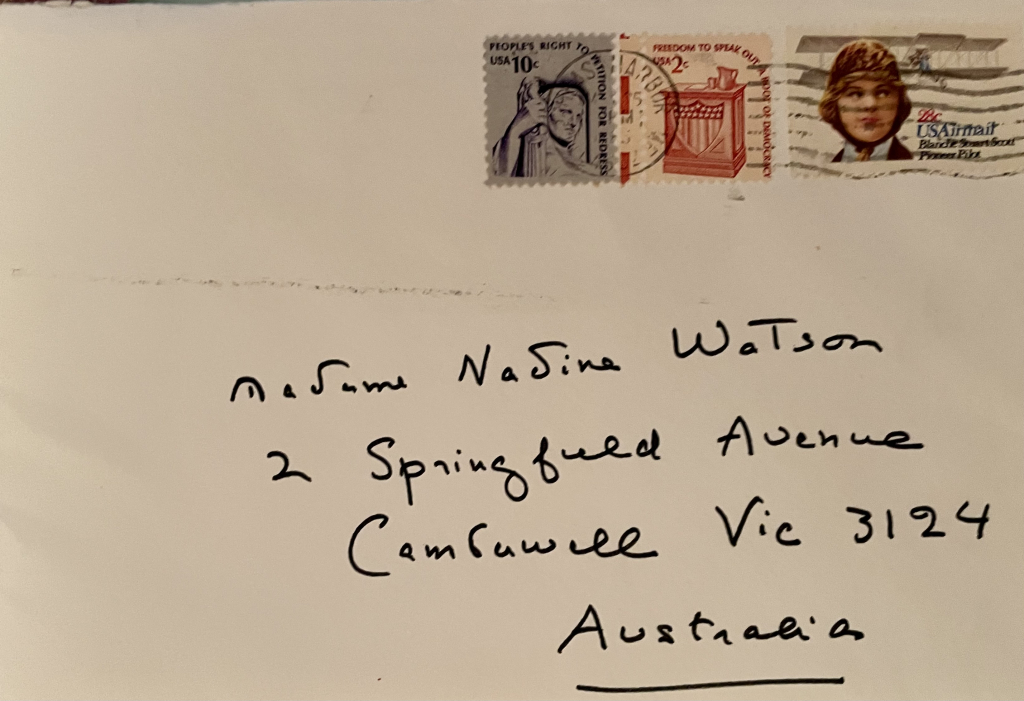 PEOPLE'S RIGHT TO PETITION FOR REDRESS
USA 10c
FREEDOM TO SPEAK OUT A ROOT OF DEMOCRACY
USA 2c
28c
USAirmail
Blanche Stuart Scott
Pioneer Pilot
Madame Nadine Watson
2 Springfield Avenue
Camberwell Vic 3124
Australia